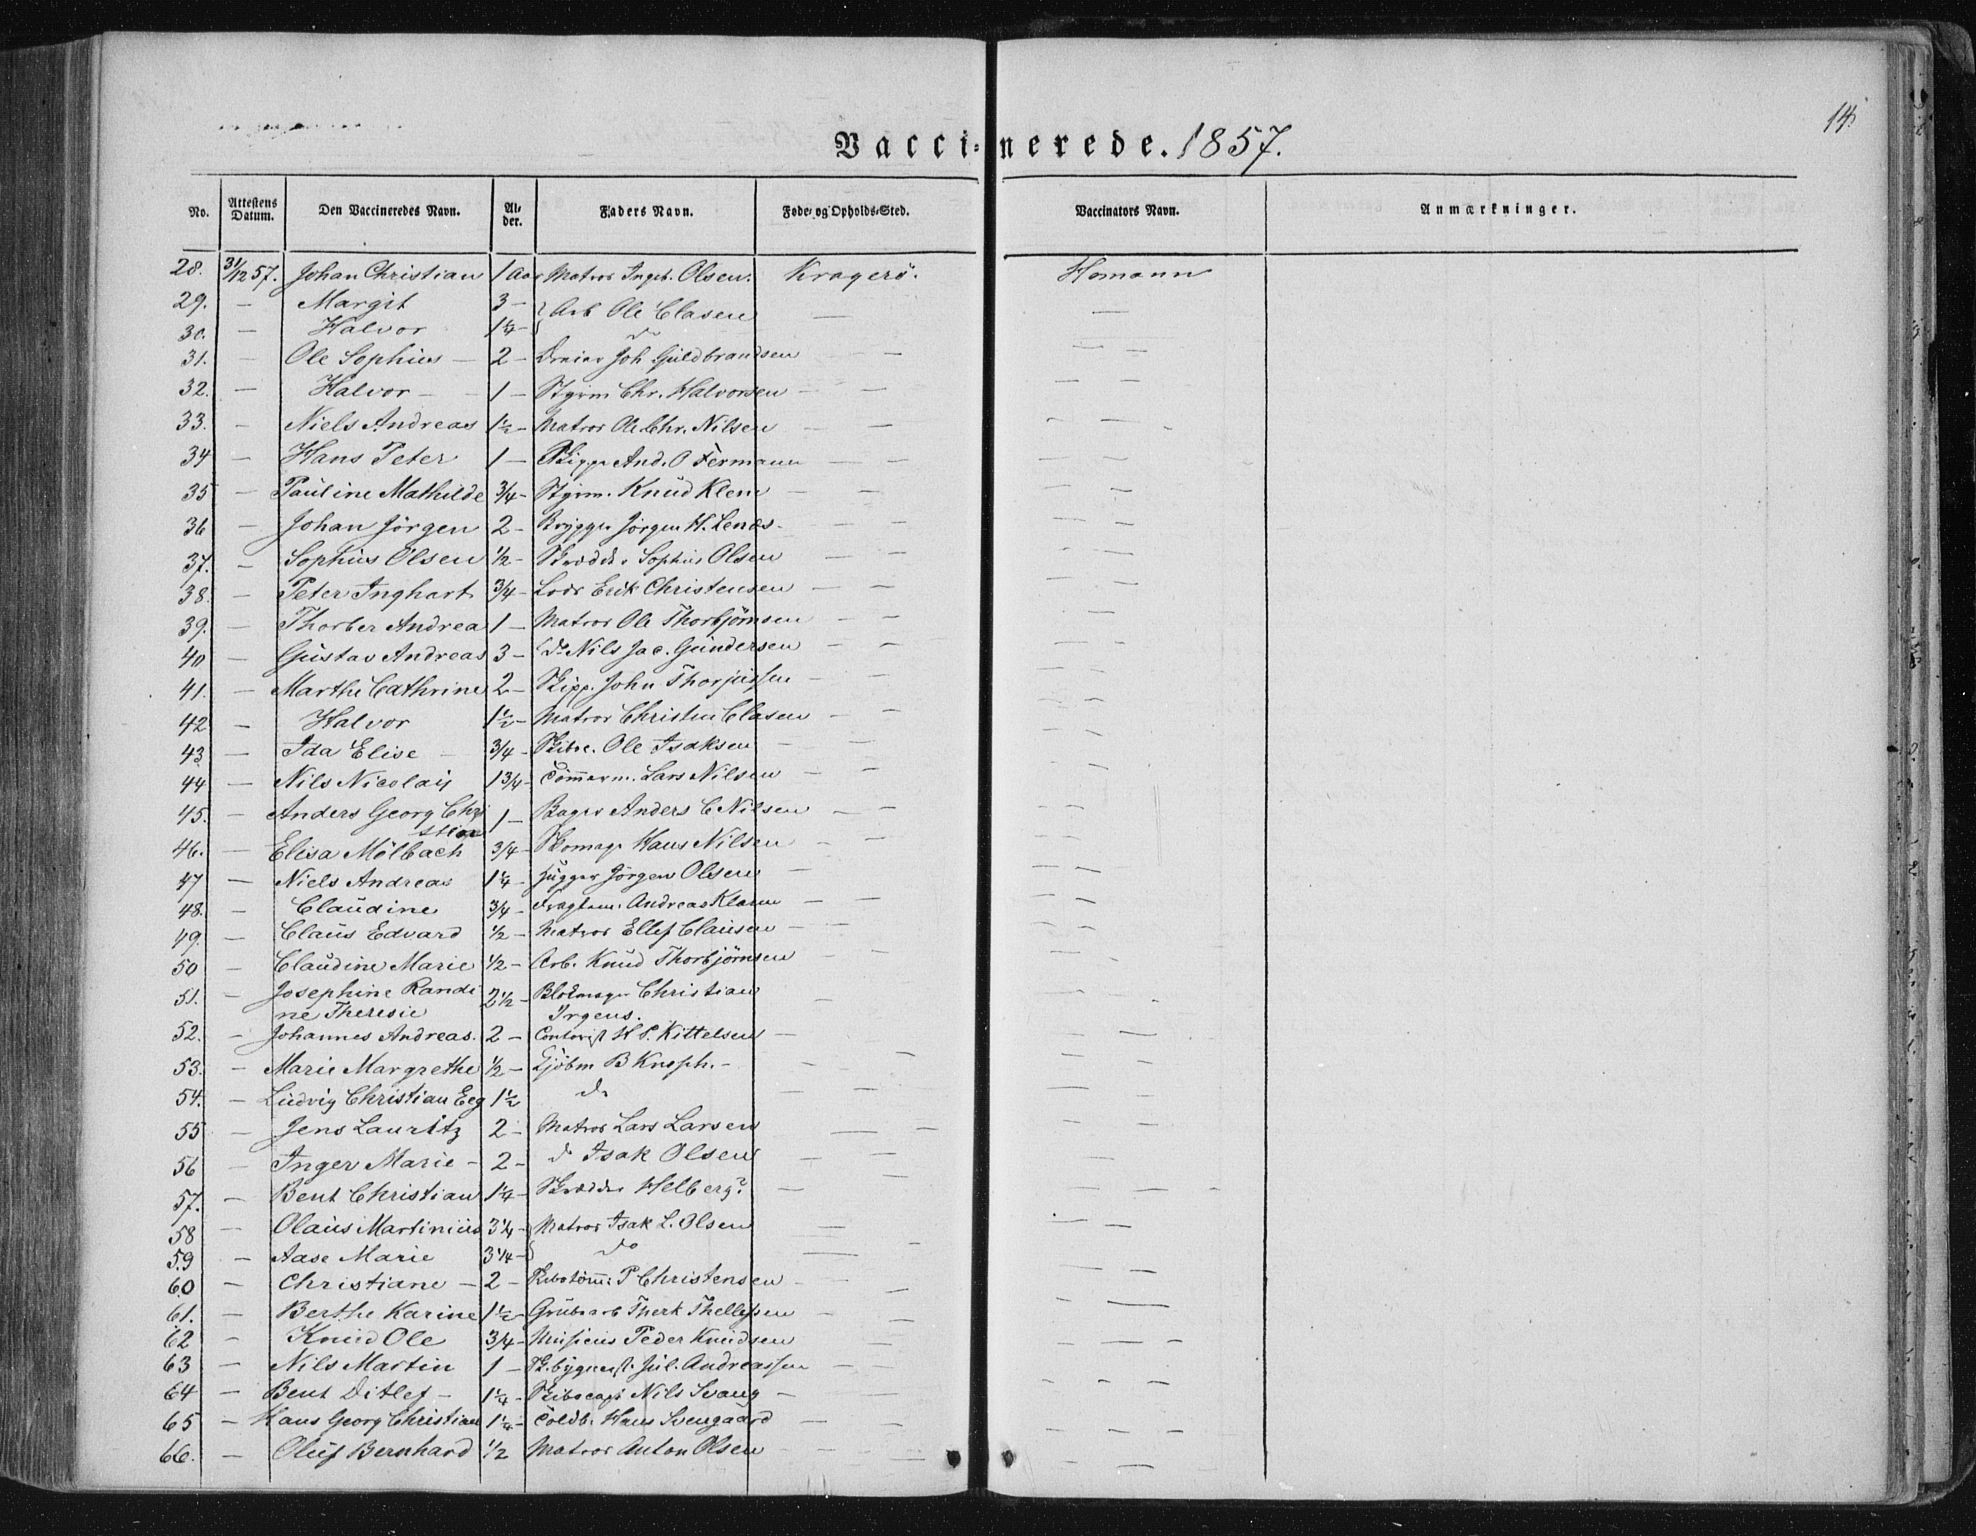 14.
Vaccinerede. 1857.
No. Attestens Datum. Den Vaccineredes Navn. Alder. Faders Navn. Føde- og Opholds-Sted. Vaccinators Navn. Anmærkninger.
28. 31/12 57. Johan Christian 1 Aar Matros Ingeb. Olsen. Kragerö. Homann
29. — Margit 3 — Arb Ole Clasen — —
30. — Halvor 1¼ — do
31. — Ole Sophius — 2 — Dreier Joh Guldbrandsen — — —
32. — Halvor — 1 — Styrm Chr. Halvorsen — — — —
33. — Niels Andreas 1½ — Matros Ole Chr. Nilsen — — — —
34 — Hans Peter 1 — Skipp And. O Fermann — — — —
35 — Pauline Mathilde 3/4 — Styrm. Knud Klem — — — —
36 — Johan Jörgen 2 — Brygger Jörgen H. Lenæs — — — —
37. — Sophus Olsen 1/2 — Skrædder Sophus Olsen — — — —
38. — Peter Inghart 3/4 — Lods Erik Christensen — — — —
39. — Thorber Andrea 1 — Matros Ole Thorbjörnsen — — — —
40 — Gustav Andreas 3 — do Nils Jac. Gundersen — — — —
41. — Marthe Cathrine 2 — Skipp. John Thorjussen — — — —
42 — Halvor 1½ — Matros Christen Clasen — — — —
43 — Ida Elise — 3/4 — Skibsc. Ole Isaksen — — — —
44 — Nils Nicolaij 1 3/4 — Tömmerm. Lars Nilsen — — — —
45. — Anders Georg Chri
stian 1 — Bager Anders C Nilsen — — — —
46. — Elisa Mölbach 3/4 — Skomag Hans Nilsen — — — —
47 — Niels Andreas 1¼ — Jörgen Olsen — — —
48. — Claudine 3/4 — Andreas Klasen — — — —
49. — Claus Edvard 1/2 — Matros Ellef Clausen — — — —
50 — Claudine Marie 1/2 — Arb. Knud Thorbjörnsen — — — —
51. — Josephine Randi
ne Theresie 2½ — Blokmager Christian
Irgens. — — — —
52. — Johannes Andreas. 2 — Contorist H P. Kittelsen — — —
53. — Marie Margrethe 1/2 — Kjöbm B Knoph. — — — — —
54. — Ludvig Christian Eeg 1½ do — — —
55 — Jens Lauritz 2 — Matros Lars Larsen — — — —
56 — Inger Marie — 2 — do Isak Olsen — — — —
57. — Bent Christian 1¼ — Skrædder Helberg? — — — —
58 — Olaus Martinius 3¼ — Matros Isak L. Olsen — — —
59 — Aase Marie 3¼ — do — — —
60 — Christiane — 2 — P Christensen — — — —
61. — Berthe Karine 1½ — Grubearb Therk Thellefsen — — —
62 — Knud Ole 3/4 — Musicus Peder Knudsen — — — —
63 — Nils Martin 1 — Sk.bygmest. Jul. Andreassen — — — —
64 — Bent Ditlef — 1¼ — Skibscapt Nils Svang — — —
65 — Hans Georg Christian 1¼ — Toldb. Hans Svengaard — — — —
66. — Oluf Bernhard 1/2 Matros Anton Olsen — — — —